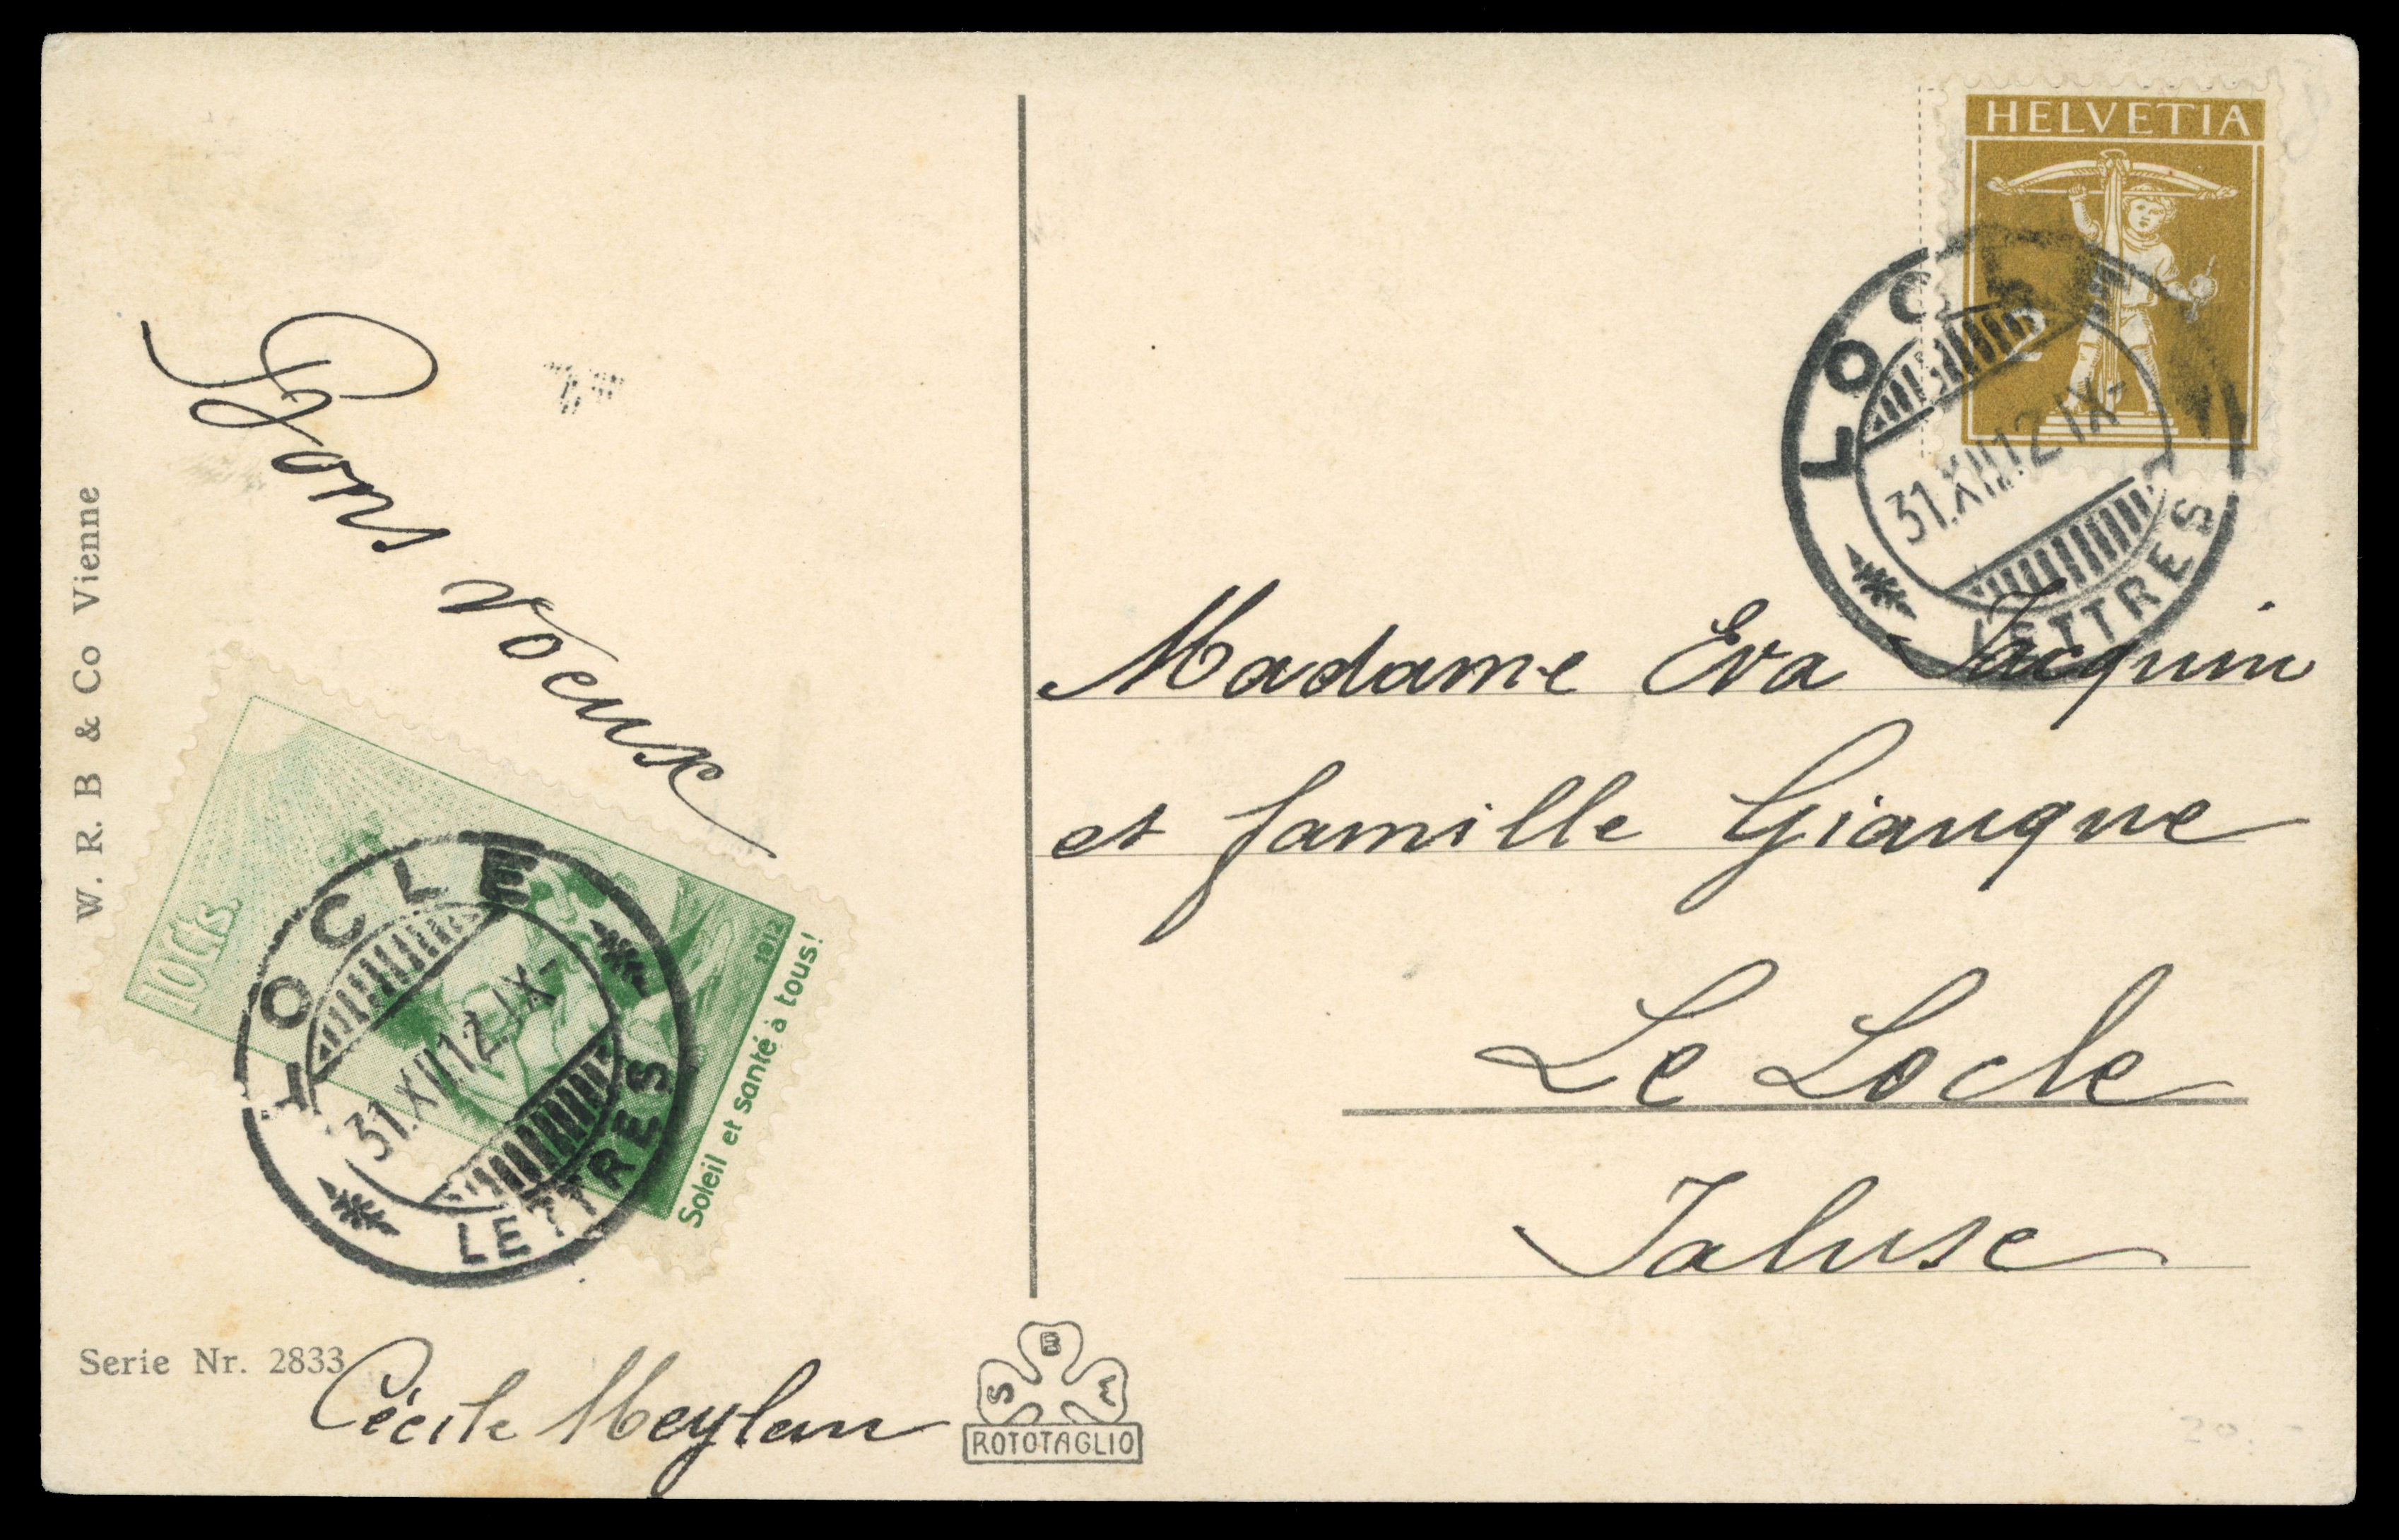 W. R. B & Co Vienne
Bons voeux
10 Cts.
1912
Soleil et santé à tous!
LOCLE
31.XII.12.IX-
LETTRES
Serie Nr. 2833
Cécile Meylan
S B M
ROTOTAGLIO
HELVETIA
LOCLE
31.XII.12.IX-
LETTRES
Madame Eva Jacquin
et famille Giauque
Le Locle
Jaluse